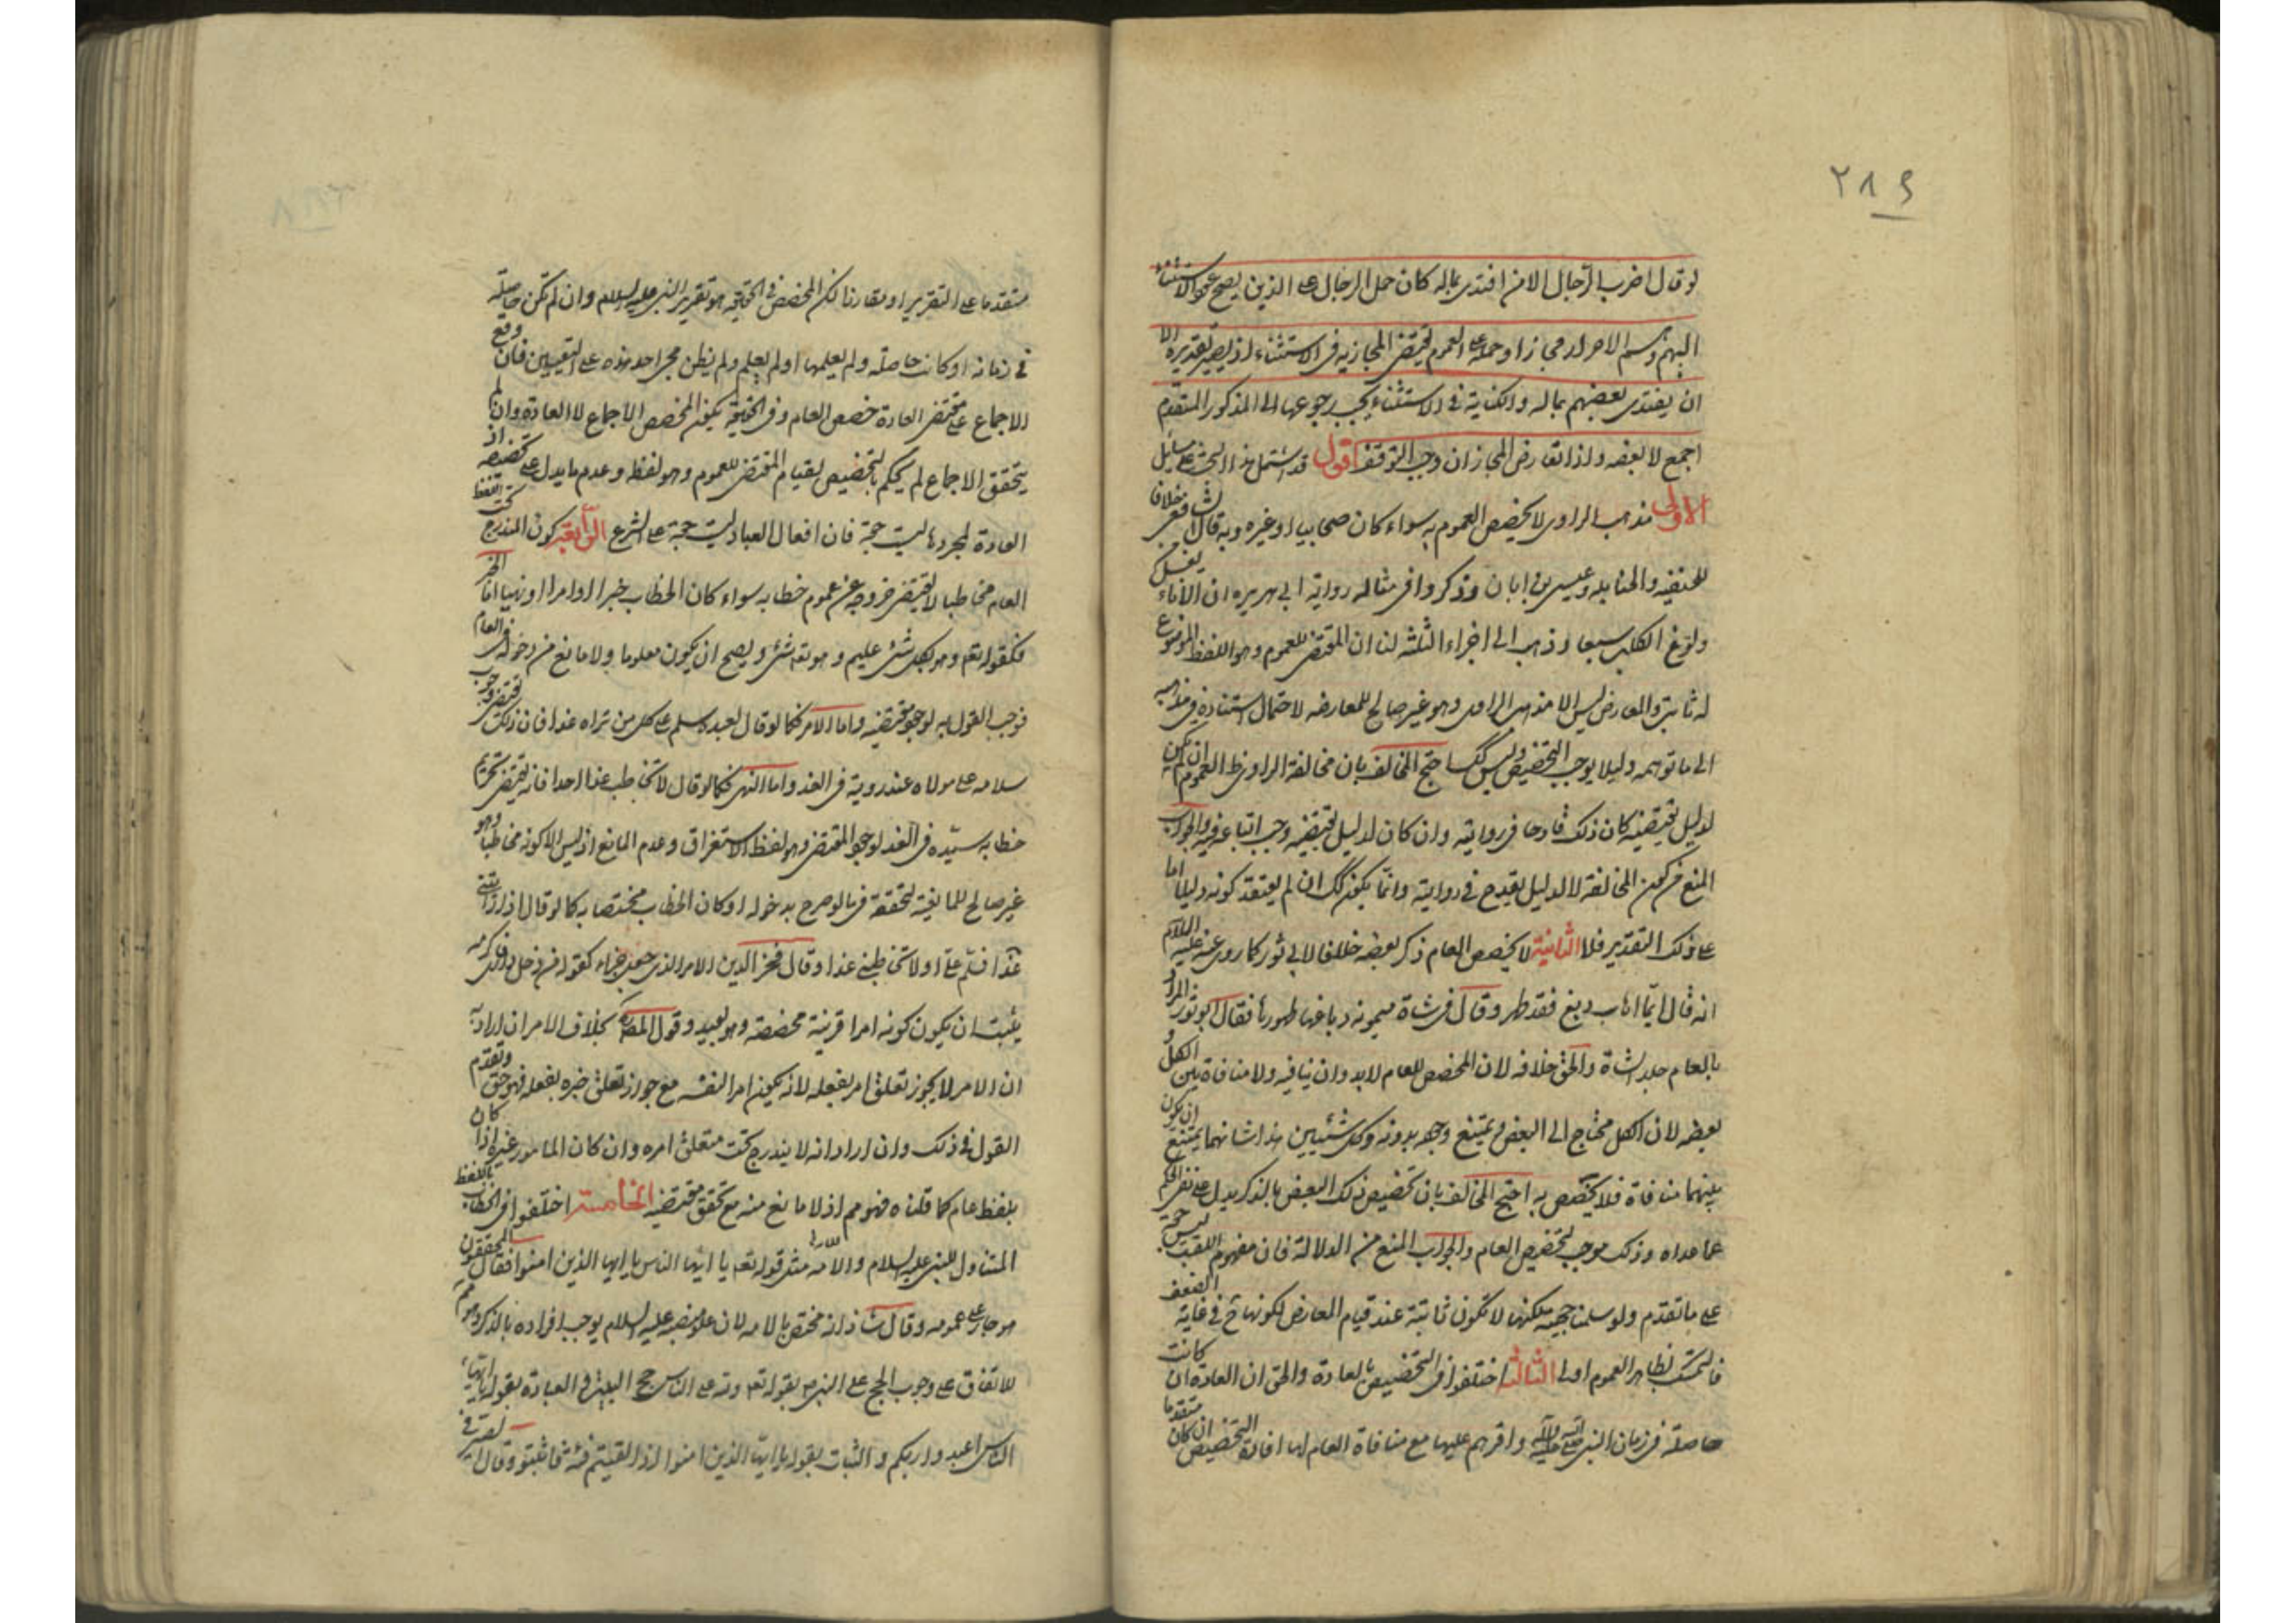 ٢٨٩
لو قال اضرب الرجال الا من افتدى بماله كان حمل الرجال على الذين يصح عود الاستثناء
اليهم وهم الاحرار مجازا وحمله على العموم يقتضى المجازية فى الاستثناء اذ يصير تقديره الا
ان يفتدى بعضهم بماله والكناية فى الاستثناء يجب رجوعها الى المذكور المتقدم
اجمع لا بعضه واذا تعارض المجازان وجب التوقف اقول قد اشتمل هذا البحث على مسائل
الاولى مذهب الراوى لا يخصص العموم به سواء كان صحابيا او غيره وبه قال الشافعى خلافا
للحنفيه والحنابله وعيسى بن ابان وذكروا فى مثاله رواية ابى هريره ان الاناء يغسل من
ولوغ الكلب سبعا وذهب الى اجزاء الثلثة لنا ان المقتضى للعموم وهو اللفظ الموضوع
له ثابت والمعارض ليس الا مذهب الراوى وهو غير صالح للمعارضه لاحتمال استناده فى مذهبه
الى ما توهمه دليلا يوجب التخصيص وليس كك احتج المخالف بان مخالفة الراوى ظ العموم ان لم يكن
لدليل يقتضيه كان ذلك قادحا فى روايته وان كان لدليل يقتضيه وجب اتباعه فيه والجواب
المنع من كون المخالفة لا لدليل يقدح فى روايته وانما يكون كك ان لم يعتقد كونه دليلا اما
على ذلك التقدير فلا الثانية لا يخصص العام ذكر بعضه خلافا لابى ثور كما روى عنه عليه السلام
انه قال ايما اهاب دبغ فقد طهر وقال فى شاة ميمونه دباغها طهورها فقال ابو ثور المراد
بالعام جلد الشاة والحق خلافه لان المخصص للعام لابد وان ينافيه ولا منافاة بين الكل و
بعضه لان الكل محتاج الى البعض ويمتنع وجوده بدونه وكل شيئين هذا شانهما يمتنع ان يكون
بينهما منافاة فلا يخصص به احتج المخالف بان تخصيص ذلك البعض بالذكر يدل على نفى الحكم
عما عداه وذلك موجب لتخصيص العام والجواب المنع من الدلالة فان مفهوم اللقب ليس حجة
على ما تقدم ولو سلمنا حجيته لكنها لا تكون ثابتة عند قيام المعارض لكونها ح فى غاية الضعف
فالتمسك بظاهر العموم اولى الثالثة اختلفوا فى التخصيص بالعادة والحق ان العادة ان كانت
حاصلة فى زمان النبى صلى الله عليه وآله واقرهم عليها مع منافاة العام لها افادة التخصيص ان كان متقدما
متقدما على التقرير او مقارنا لكن المخصص فى الحقيقه هو تقرير النبى عليه السلام وان لم تكن حاصلة
فى زمانه او كانت حاصلة ولم يعلمها او لم يعلم ولم يظن مجرى احد هذه على التعيين فان وقع
الاجماع على مقتضى العادة خصص العام وفى الحقيقة يكون المخصص الاجماع لا العادة وان لم
يتحقق الاجماع لم يحكم بالتخصيص لقيام المقتضى للعموم وهو لفظه وعدم ما يدل على تخصيصه اذ
العادة لمجردها ليست حجة فان افعال العباد ليست حجة على الشرع الرابعة كون المندرج تحت اللفظ
العام مخاطبا لا يقتضى خروجه عن عموم خطابه سواء كان الخطاب خبرا او امرا او نهيا اما الخبر
فكقوله تعه وهو بكل شئ عليم وهو تعه شئ ويصح ان يكون معلوما ولا مانع من دخوله فى العام
فوجب القول به لوجود مقتضيه واما الامر فكما لو قال لعبده سلم على كل من تراه غدا فان ذلك يقتضى وجوب
سلامه على مولاه عند رويته فى الغد واما النهى فكما لو قال لا تخاطب غدا احدا فانه يقتضى تحريم
خطابه سيده فى الغد لوجود المقتضى وهو لفظ الاستغراق وعدم المانع اذ ليس الا كونه مخاطبا وهو
غير صالح للمانعية لتحققه فيما لو صرح بدخوله او كان الخطاب مختصا به كما لو قال اذا رايتنى
غدا فسلم على او لا تخاطبنى غدا وقال فخر الدين الامر الذى جعل جزاء كقوله من دخل دارى فاكرمه
يشبه ان يكون كونه امرا قرينة مخصصة وهو بعيد وقول المصنف بخلاف الامر ان اراد به
ان الامر لا يجوز تعلق امر بفعله لانه يكون امرا لنفسه مع جواز تعلق خبره بفعله فهو حق وتقدم
القول فى ذلك وان اراد انه لا يندرج تحت متعلق امره وان كان المامور غيره اذا كان
بلفظ عام كما قلناه فهو مم اذ لا مانع منه مع تحقق مقتضيه الخامسة اختلفوا فى الخطاب باللفظ
المتناول للنبى عليه السلام والامه مثل قوله تعه يا ايها الناس يا ايها الذين امنوا فقال المحققون
هو جار على عمومه وقال شاذ انه مختص بالامه لان علو منصبه عليه السلام يوجب افراده بالذكر وهو مم
للاتفاق على وجوب الحج على النبى ص بقوله تعه ولله على الناس حج البيت والعبادة بقوله يا ايها
الناس اعبدوا ربكم والثبات بقوله يا ايها الذين امنوا اذا لقيتم فئة فاثبتوا وقال